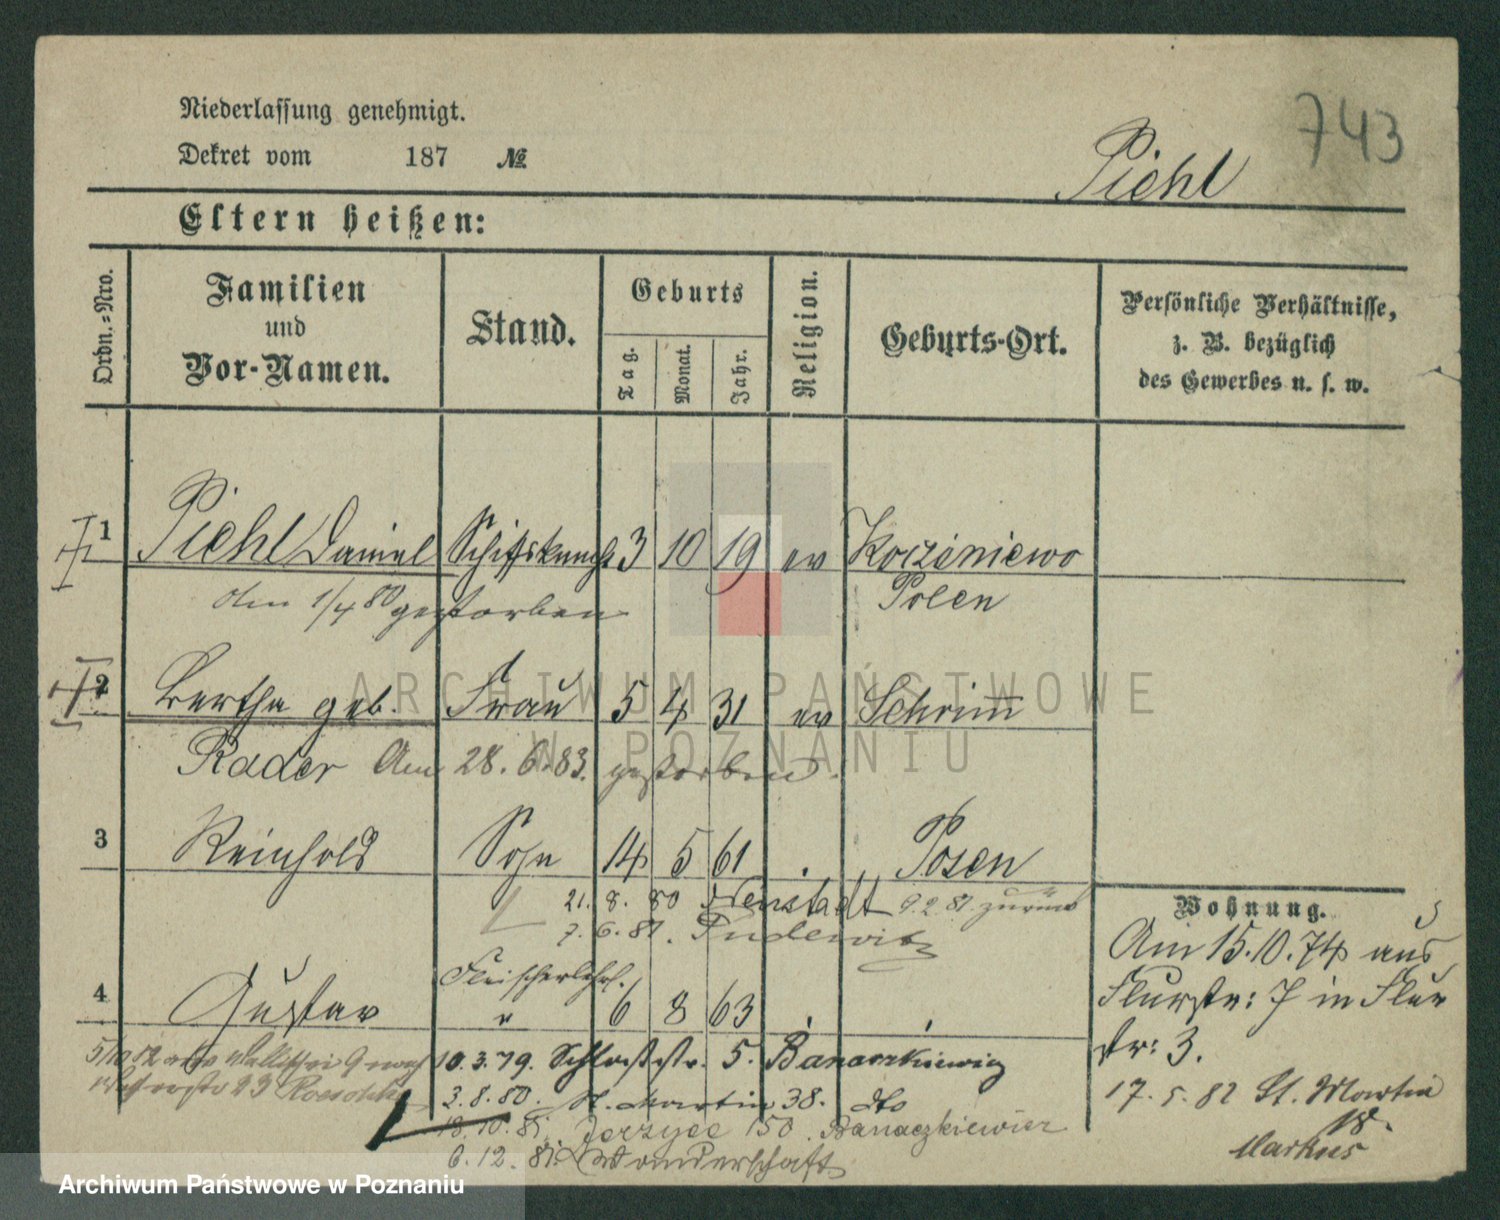 743
Niederlassung genehmigt.
Dekret vom 187 №
Piehl
Eltern heißen:
Ordn.-Nro.
Familien
und
Vor-Namen.
Stand.
Geburts
Tag. Monat. Jahr.
Religion.
Geburts-Ort.
Persönliche Verhältnisse,
z. B. bezüglich
des Gewerbes u. s. w.
1 Piehl Daniel Schiffsknecht 3 10 19 ev
Polen
am 1/4 80 gestorben
2 Bertha geb. Frau 5 4 31 ev Schrimm
Rader Am 28. 6. 83. gestorben.
3 Reinhold Sohn 14 5 61 Posen
21. 8. 80 Neustadt 9. 2. 81. zurück
7. 6. 81. Pudewitz
Fleischerlehrl.
4 Gustav " 6 8 63
10. 3. 79. Schloßstr. 5. Banaczkiewicz
3. 8. 80. St. Martin 38. dto
18. 10. 81. Jerzyce 150. Banaczkiewicz
6. 12. 81. Wanderschaft
Wohnung.
Am 15. 10. 74 aus
Flurstr: 7 in Flur
str: 3.
17. 5. 82 St. Martin
18.
Markus
ARCHIWUM PAŃSTWOWE
W POZNANIU
Archiwum Państwowe w Poznaniu